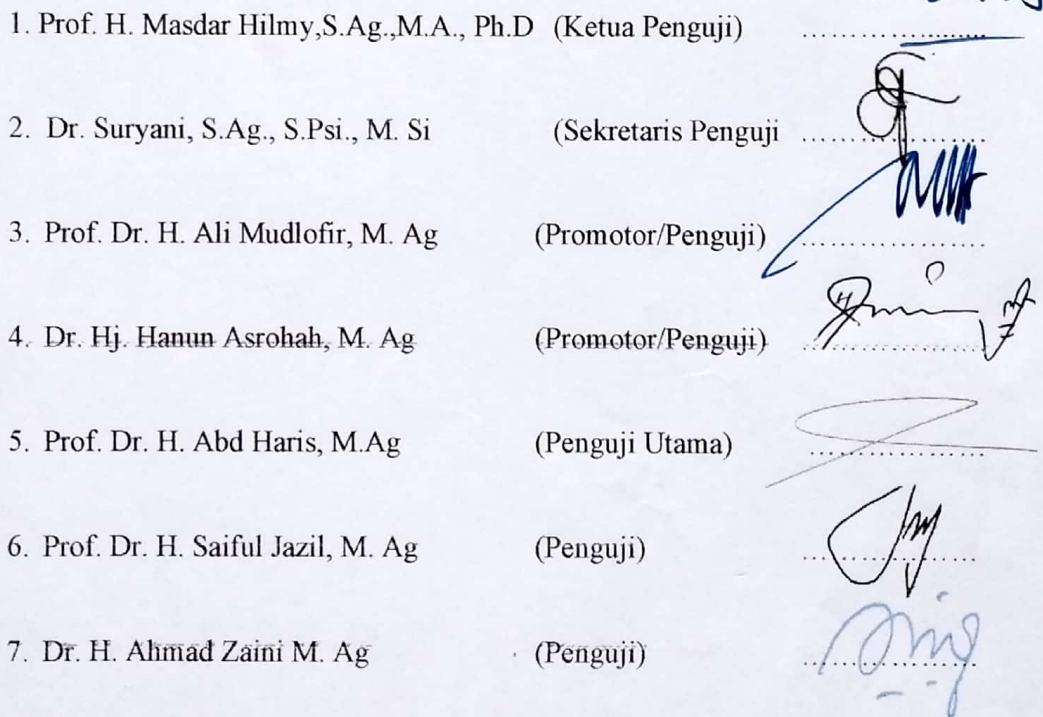 1. Prof. H. Masdar Hilmy,S.Ag.,M.A., Ph.D (Ketua Penguji) ......................
2. Dr. Suryani, S.Ag., S.Psi., M. Si (Sekretaris Penguji ......................
3. Prof. Dr. H. Ali Mudlofir, M. Ag (Promotor/Penguji) ......................
4. Dr. Hj. Hanun Asrohah, M. Ag (Promotor/Penguji) ......................
5. Prof. Dr. H. Abd Haris, M.Ag (Penguji Utama) ......................
6. Prof. Dr. H. Saiful Jazil, M. Ag (Penguji) ......................
7. Dr. H. Ahmad Zaini M. Ag (Penguji) ......................